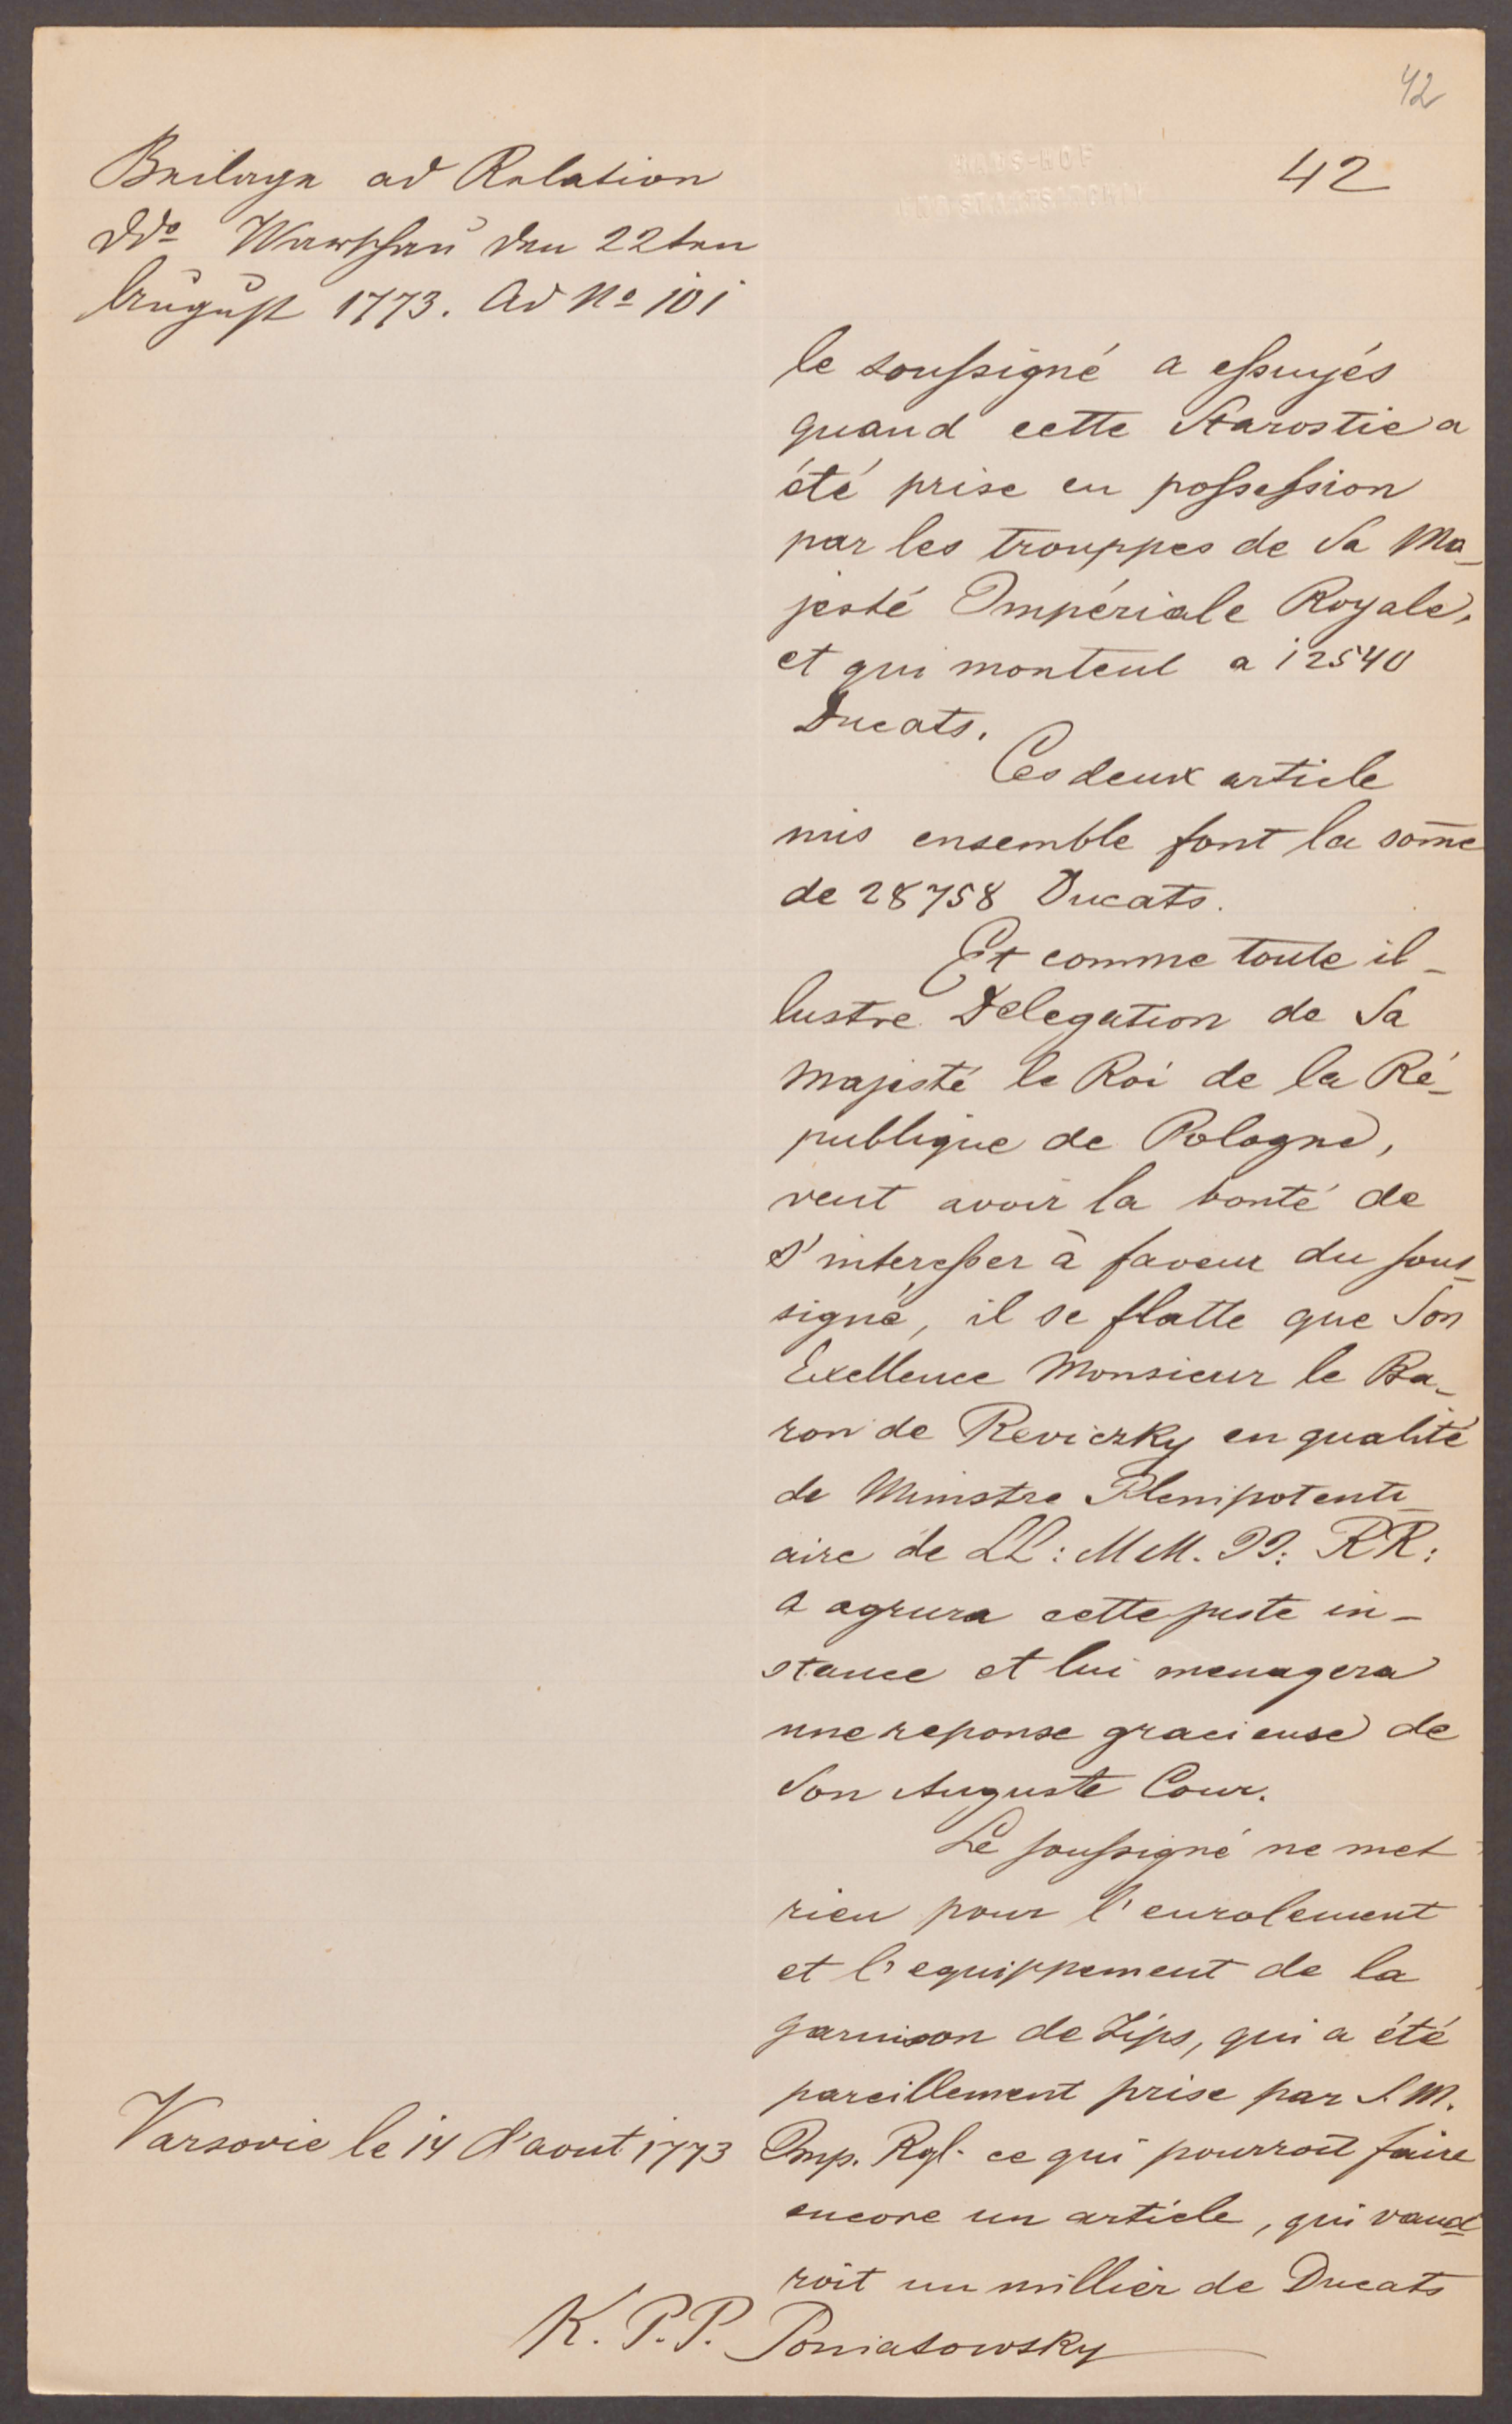 42
42
HAUS-HOF
UND STAATSARCHIV
Beilage ad Relation
ddº Warschau den 22ten
August 1773. Ad Nº 101
le soussigné a essuyés
quand cette Starostie a
été prise en possession
par les trouppes de Sa Ma_
jesté Impériale Royale,
et qui monteut a 12540
Ducats.
Ces deux article
mis ensemble font la som̄e
de 28758 Ducats.
Et comme toute il_
lustre Delegation de Sa
Majesté le Roi de la Ré_
publique de Pologne,
veut avoir la bonté de
s'interesser à faveur du sous_
signé, il se flatte que Son
Exellence Monsieur le Ba_
ron de Reviczky en qualité
de Ministre Plenipotenti_
aire de LL: MM. II: RR:
a agrura cette juste in_
stance et lui menagera
une reponse gracieuse de
Son Auguste Cour.
Le soussigné ne met
rien pour l'enrolement
et l'equippement de la
garnison de Zips, qui a été
pareillement prise par S. M.
Imp. Rgl. ce qui pourroit faire
encore un article, qui vaud_
roit un millier de Ducats
Varsovie le 14 d'aout 1773
K. P. P. Poniatowsky